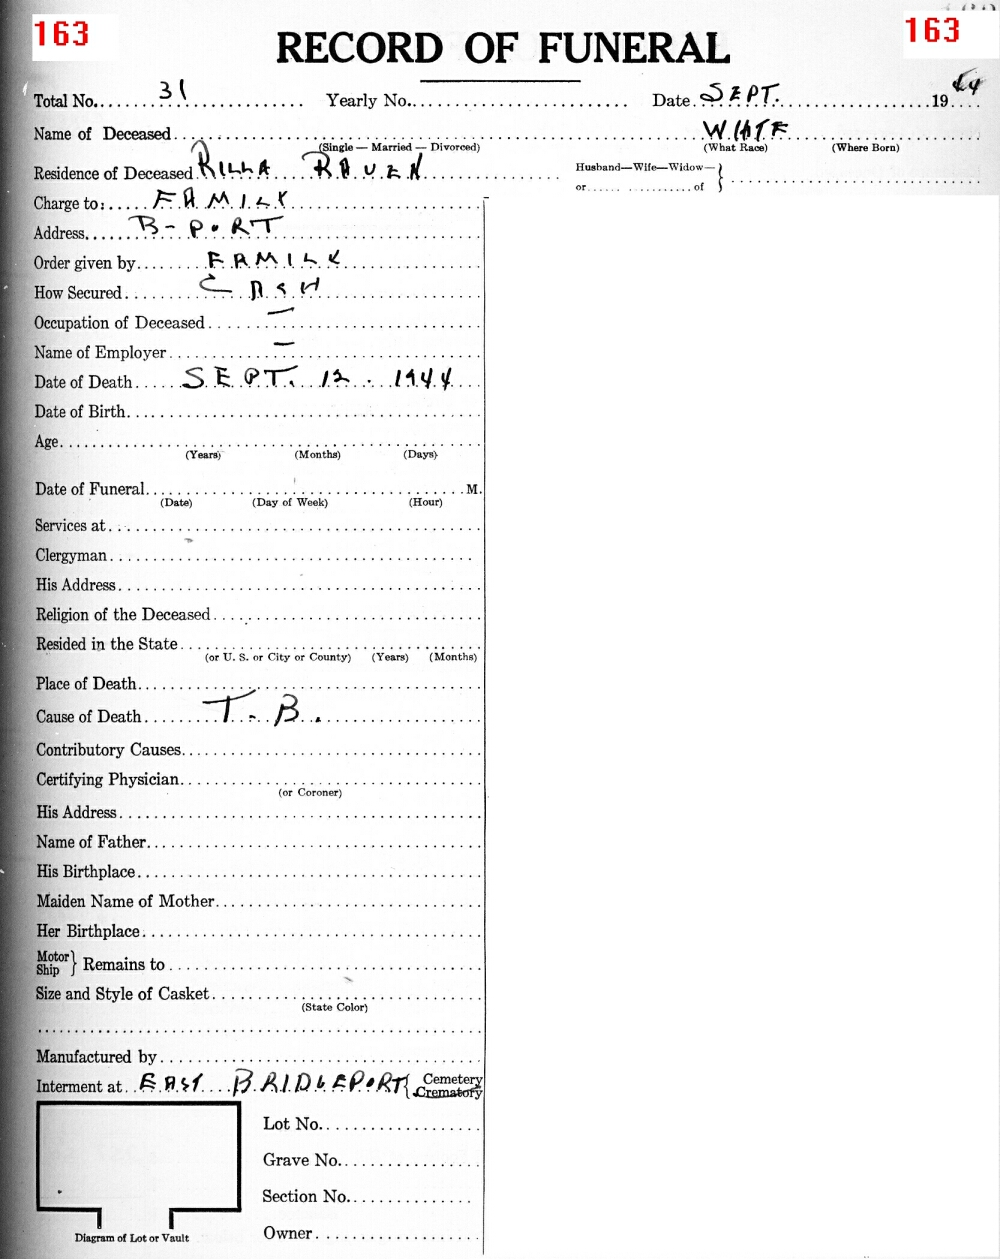 163 163
RECORD OF FUNERAL
Total No. 31 Yearly No. Date SEPT. 19 44
Name of Deceased WHITE
(Single — Married — Divorced) (What Race) (Where Born)
Residence of Deceased RILLA RAUEN Husband—Wife—Widow—}
or of
Charge to: FAMILY
Address B-PORT
Order given by FAMILY
How Secured CASH
Occupation of Deceased —
Name of Employer —
Date of Death SEPT. 12. 1944
Date of Birth
Age
(Years) (Months) (Days)
Date of Funeral M.
(Date) (Day of Week) (Hour)
Services at
Clergyman
His Address
Religion of the Deceased
Resided in the State
(or U. S. or City or County) (Years) (Months)
Place of Death
Cause of Death T. B.
Contributory Causes
Certifying Physician
(or Coroner)
His Address
Name of Father
His Birthplace
Maiden Name of Mother
Her Birthplace
Motor
Ship } Remains to
Size and Style of Casket
(State Color)
Manufactured by
Interment at EAST BRIDGEPORT { Cemetery
Crematory
Lot No.
Grave No.
Section No.
Owner
Diagram of Lot or Vault